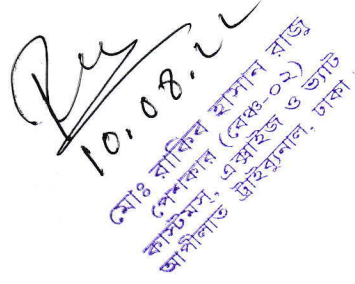 10.08.22
মোঃ রাকিব হাসান রাজু
পেশকার (বেঞ্চ-০২)
কাস্টমস, এক্সাইজ ও ভ্যাট
আপীলাত ট্রাইব্যুনাল, ঢাকা।